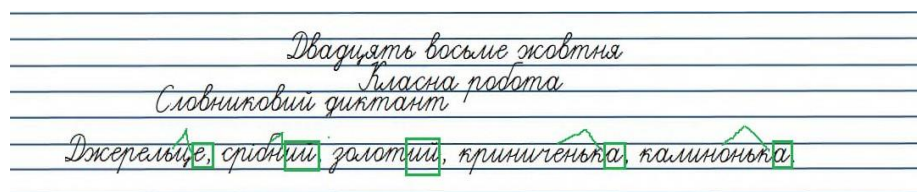 Двадцять восьме жовтня
Класна робота
Словниковий диктант
Джерельце, срібний, золотий, криниченька, калинонька.